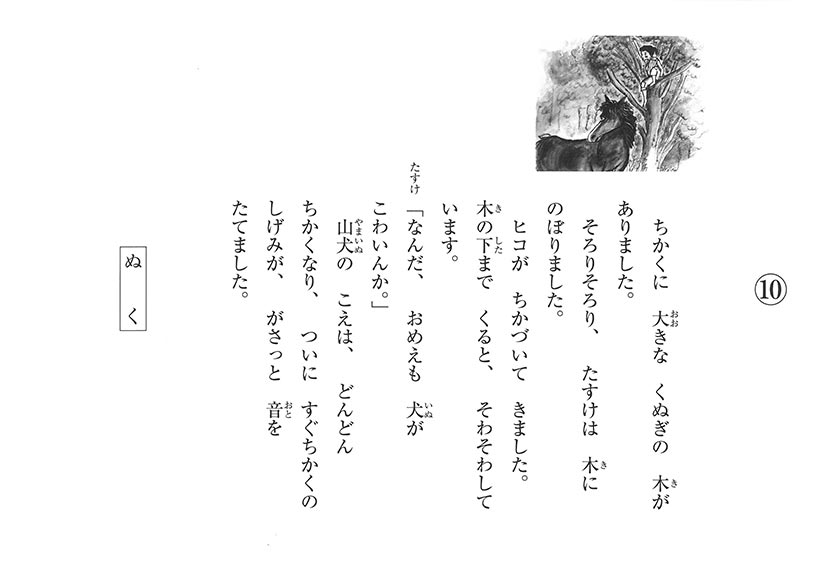 ⑩
ちかくに 大きな くぬぎの 木が
ありました。
そろりそろり、 たすけは 木に
のぼりました。
ヒコが ちかづいて きました。
木の下まで くると、 そわそわして
います。
たすけ
「なんだ、 おめえも 犬が
こわいんか。」
山犬の こえは、 どんどん
ちかくなり、 ついに すぐちかくの
しげみが、 がさっと 音を
たてました。
ぬく